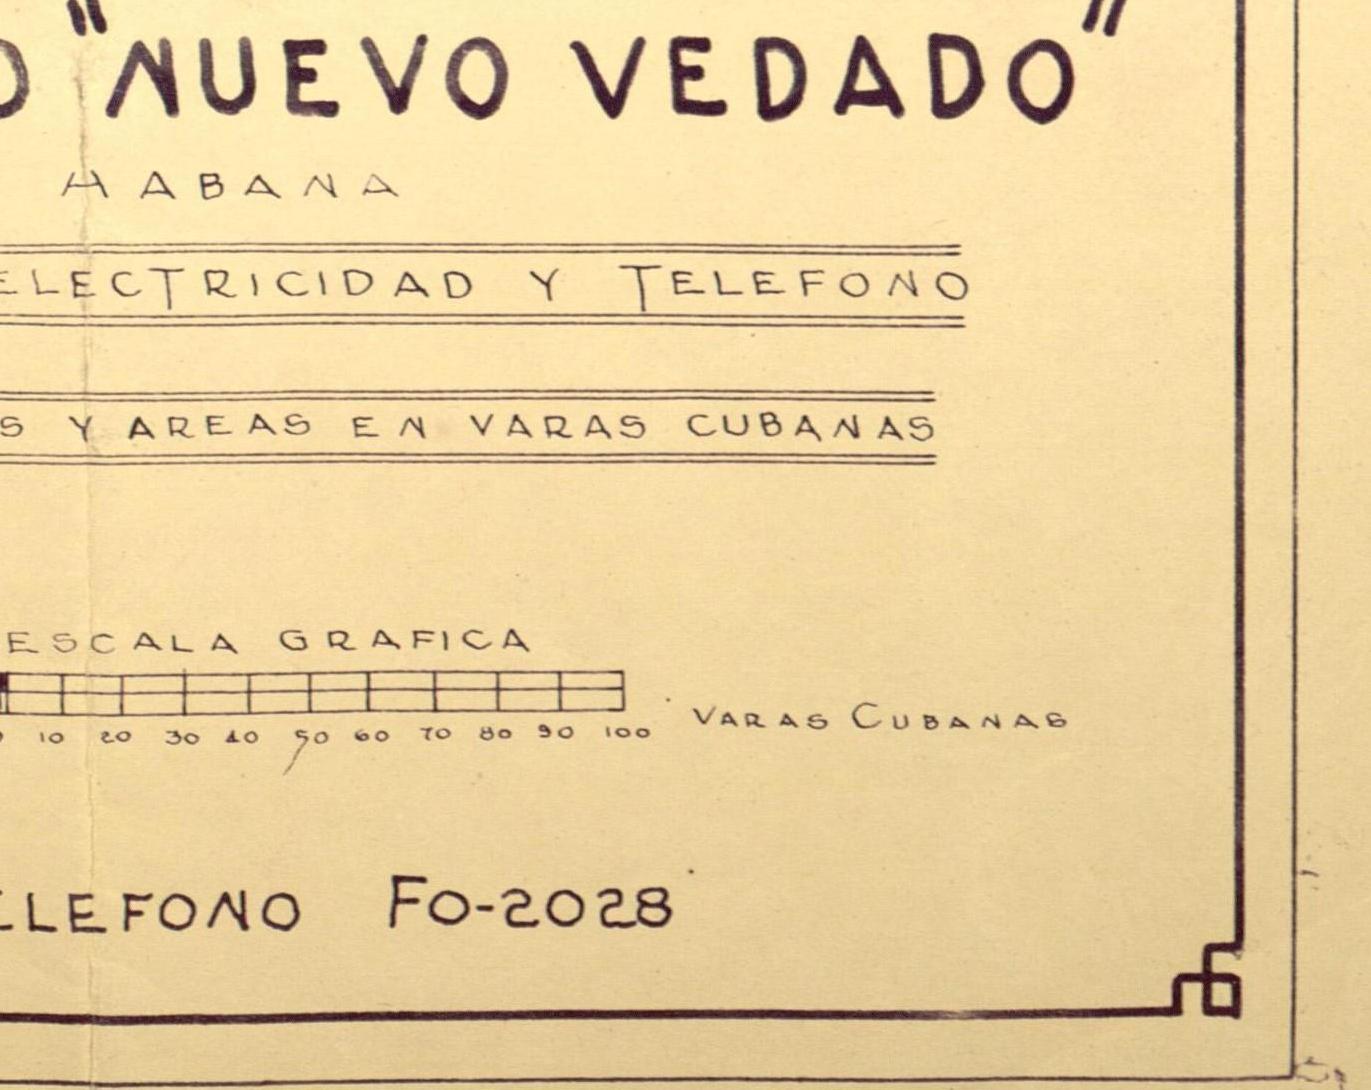 O "NUEVO VEDADO"
HABANA
ELECTRICIDAD Y TELEFONO
S Y AREAS EN VARAS CUBANAS
ESCALA GRAFICA
0 10 20 30 40 50 60 70 80 90 100
VARAS CUBANAS
ELEFONO FO-2028